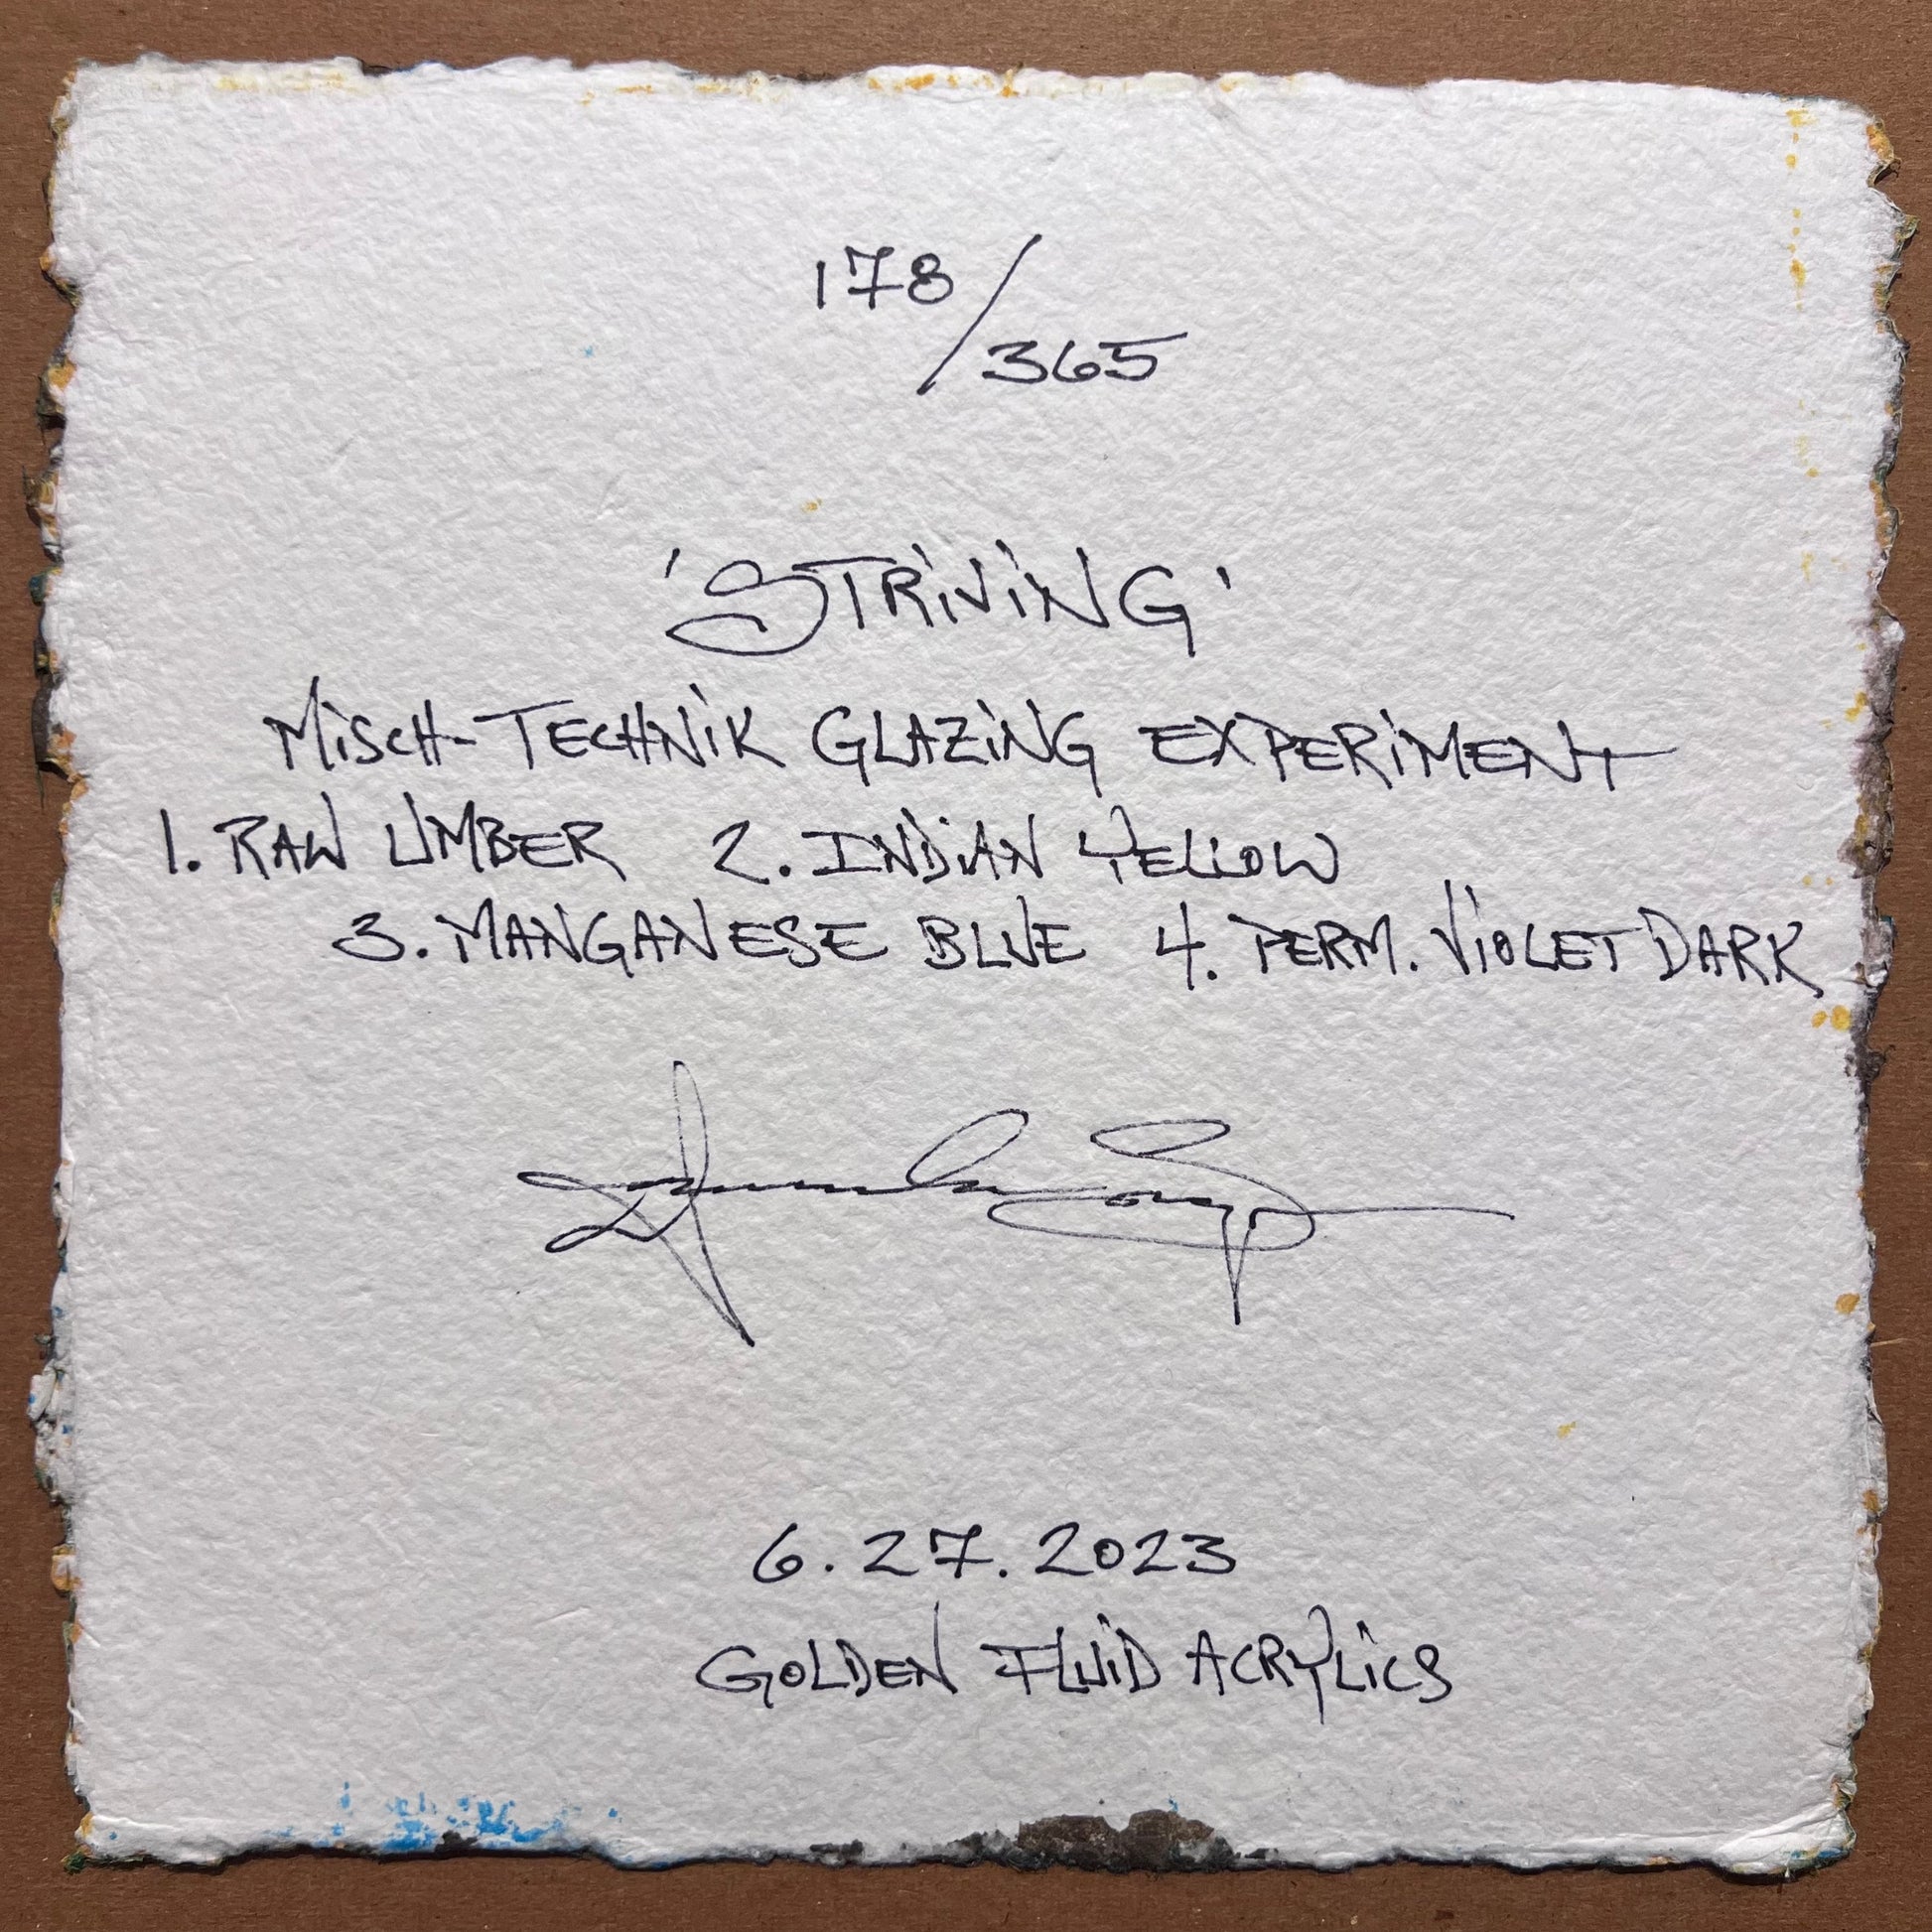 178/365
'STRiViNG'
MiSCH-TECHNiK GLAZiNG EXPERiMENT
1. RAW UMBER 2. INDiAN YELLOW
3. MANGANESE BLUE 4. PERM. ViOLET DARK
6.27.2023
GOLDEN FLUiD ACRYLiCS